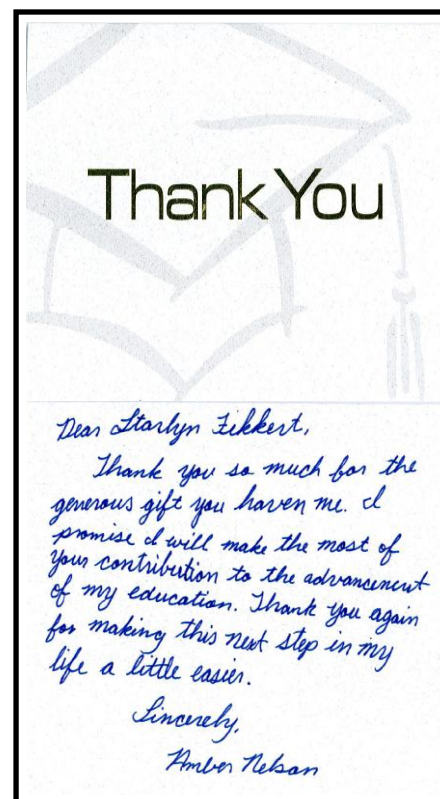 Thank You
Dear Starlyn Fikkert,
Thank you so much for the
generous gift you haven me. I
promise I will make the most of
your contribution to the advancement
of my education. Thank you again
for making this next step in my
life a little easier.
Sincerely,
Amber Nelson